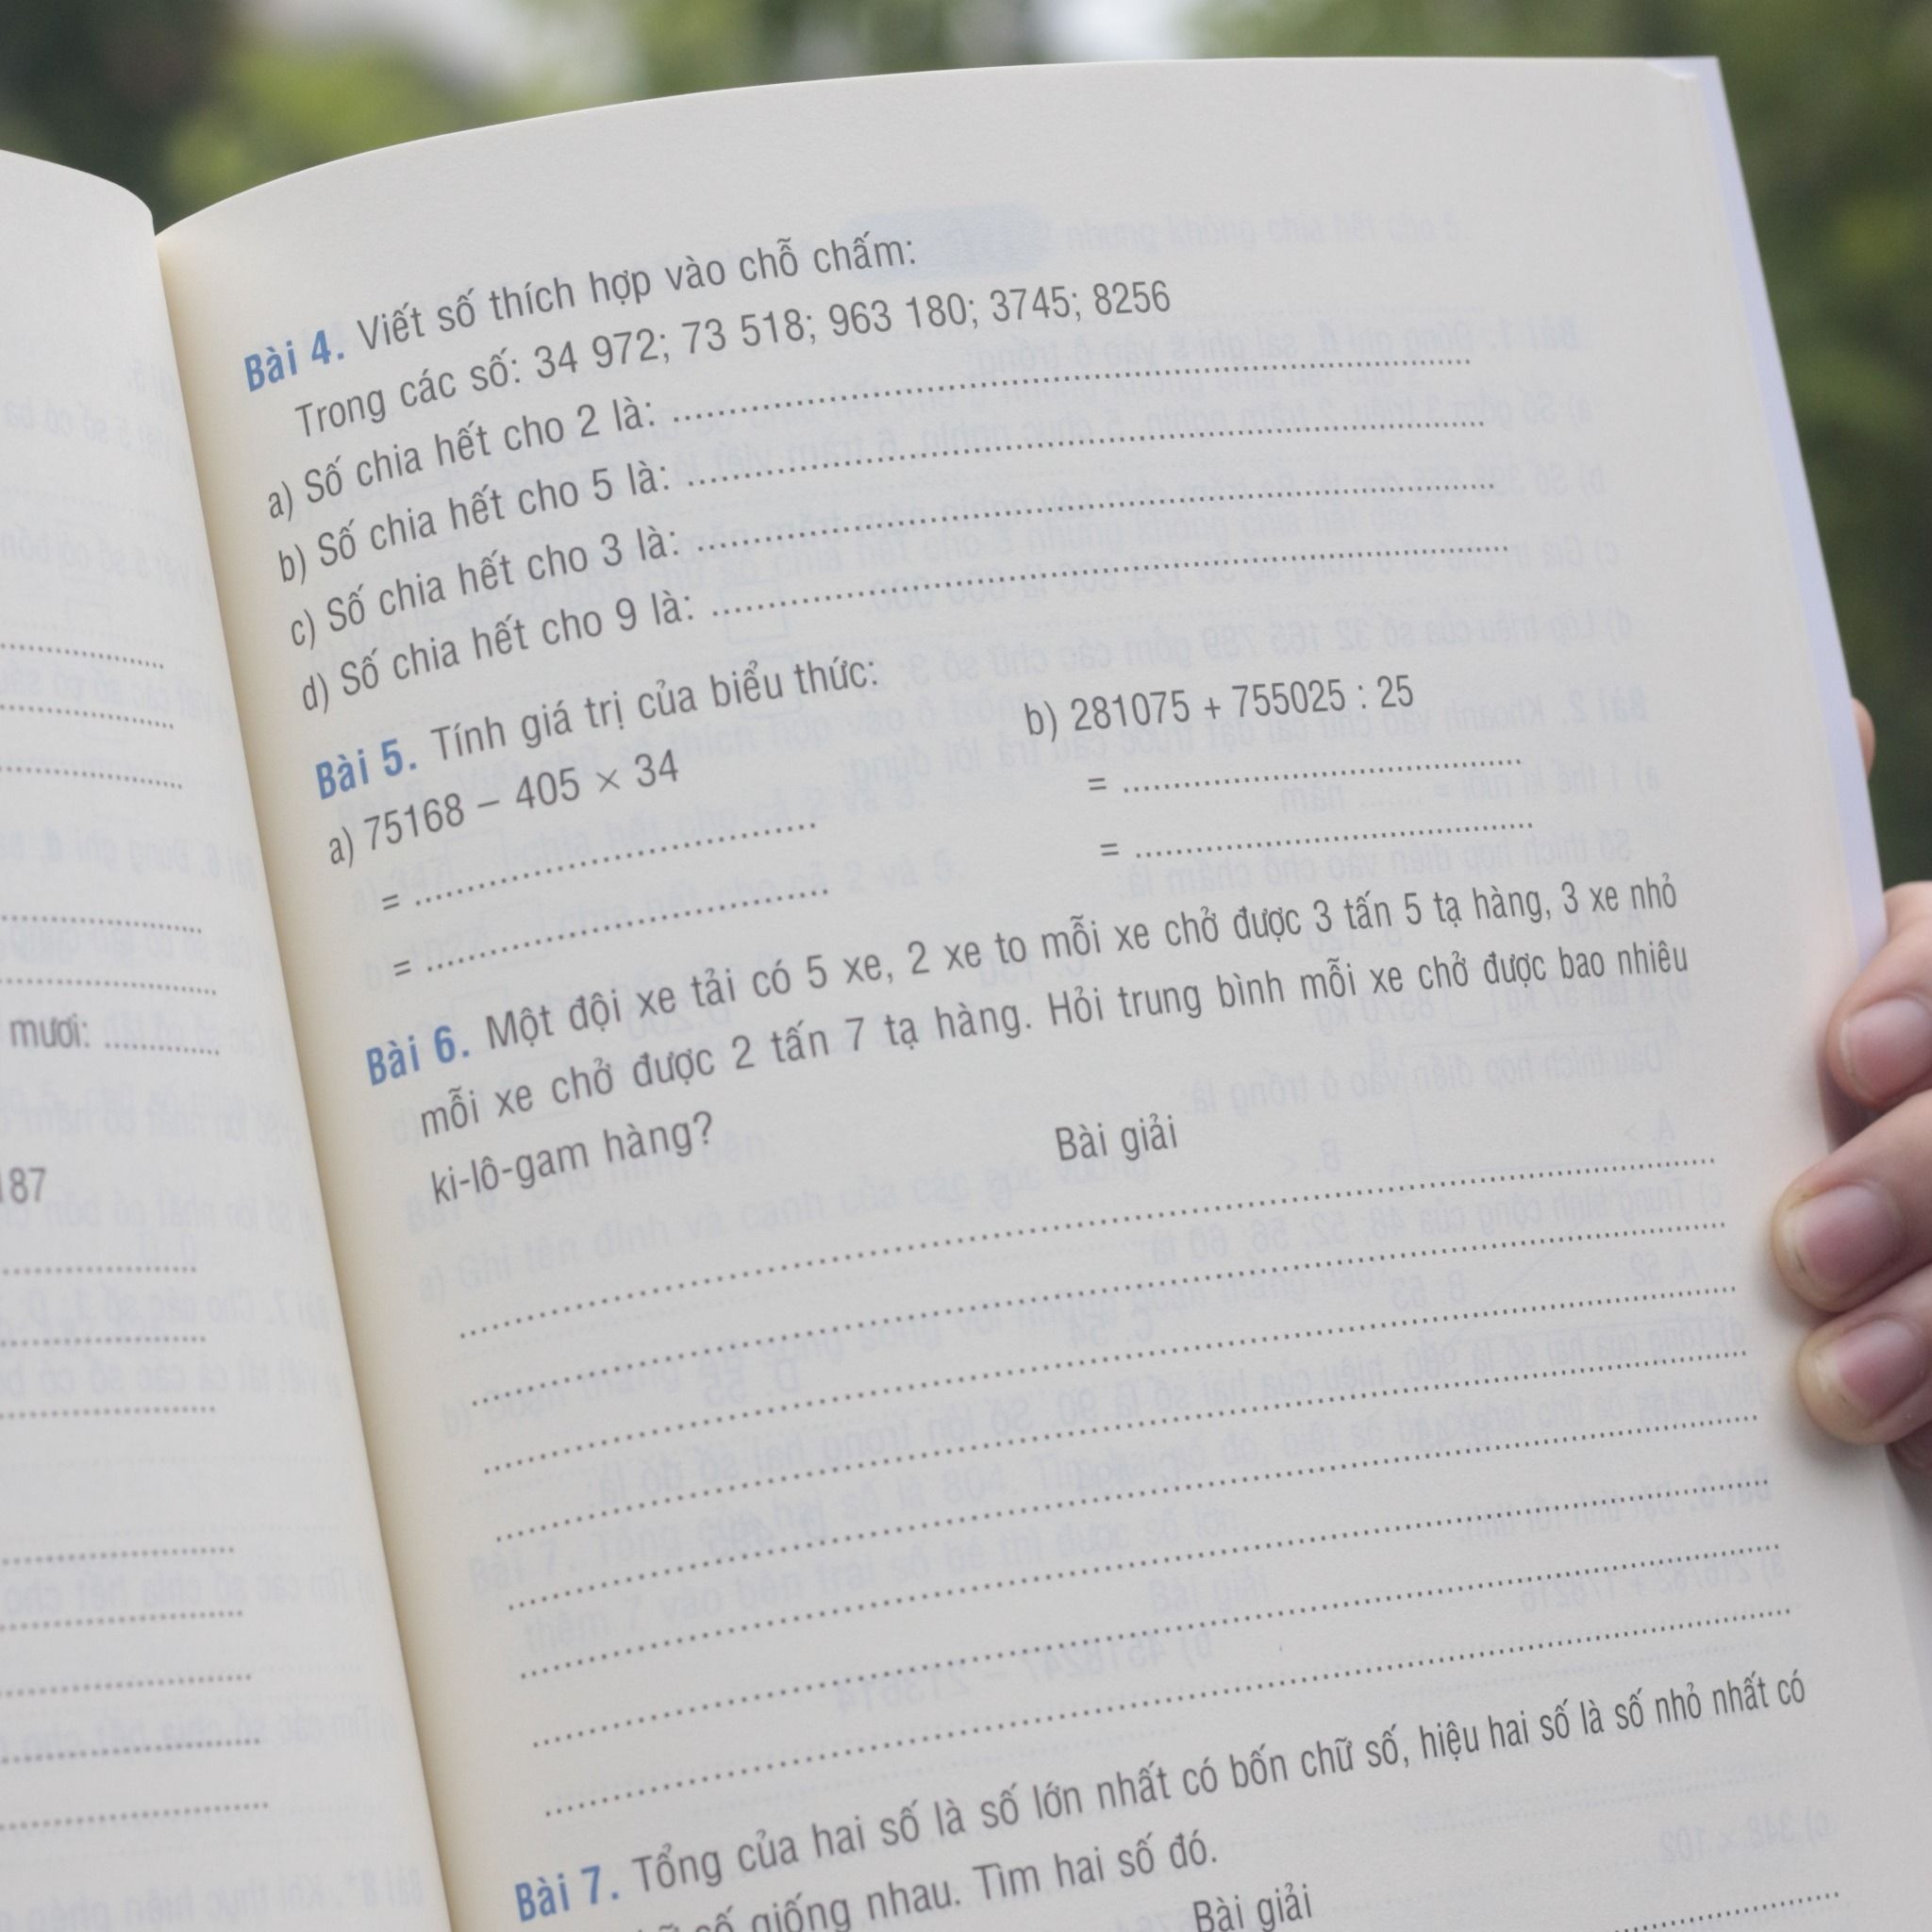 mươi: ..............
187
Bài 4. Viết số thích hợp vào chỗ chấm:
Trong các số: 34 972; 73 518; 963 180; 3745; 8256
a) Số chia hết cho 2 là: ..............
b) Số chia hết cho 5 là: ..............
c) Số chia hết cho 3 là: ..............
d) Số chia hết cho 9 là: ..............
Bài 5. Tính giá trị của biểu thức:
a) 75168 – 405 × 34
= ..............
= ..............
b) 281075 + 755025 : 25
= ..............
= ..............
Bài 6. Một đội xe tải có 5 xe, 2 xe to mỗi xe chở được 3 tấn 5 tạ hàng, 3 xe nhỏ
mỗi xe chở được 2 tấn 7 tạ hàng. Hỏi trung bình mỗi xe chở được bao nhiêu
ki-lô-gam hàng?
Bài giải
Bài 7. Tổng của hai số là số lớn nhất có bốn chữ số, hiệu hai số là số nhỏ nhất có
số giống nhau. Tìm hai số đó.
Bài giải